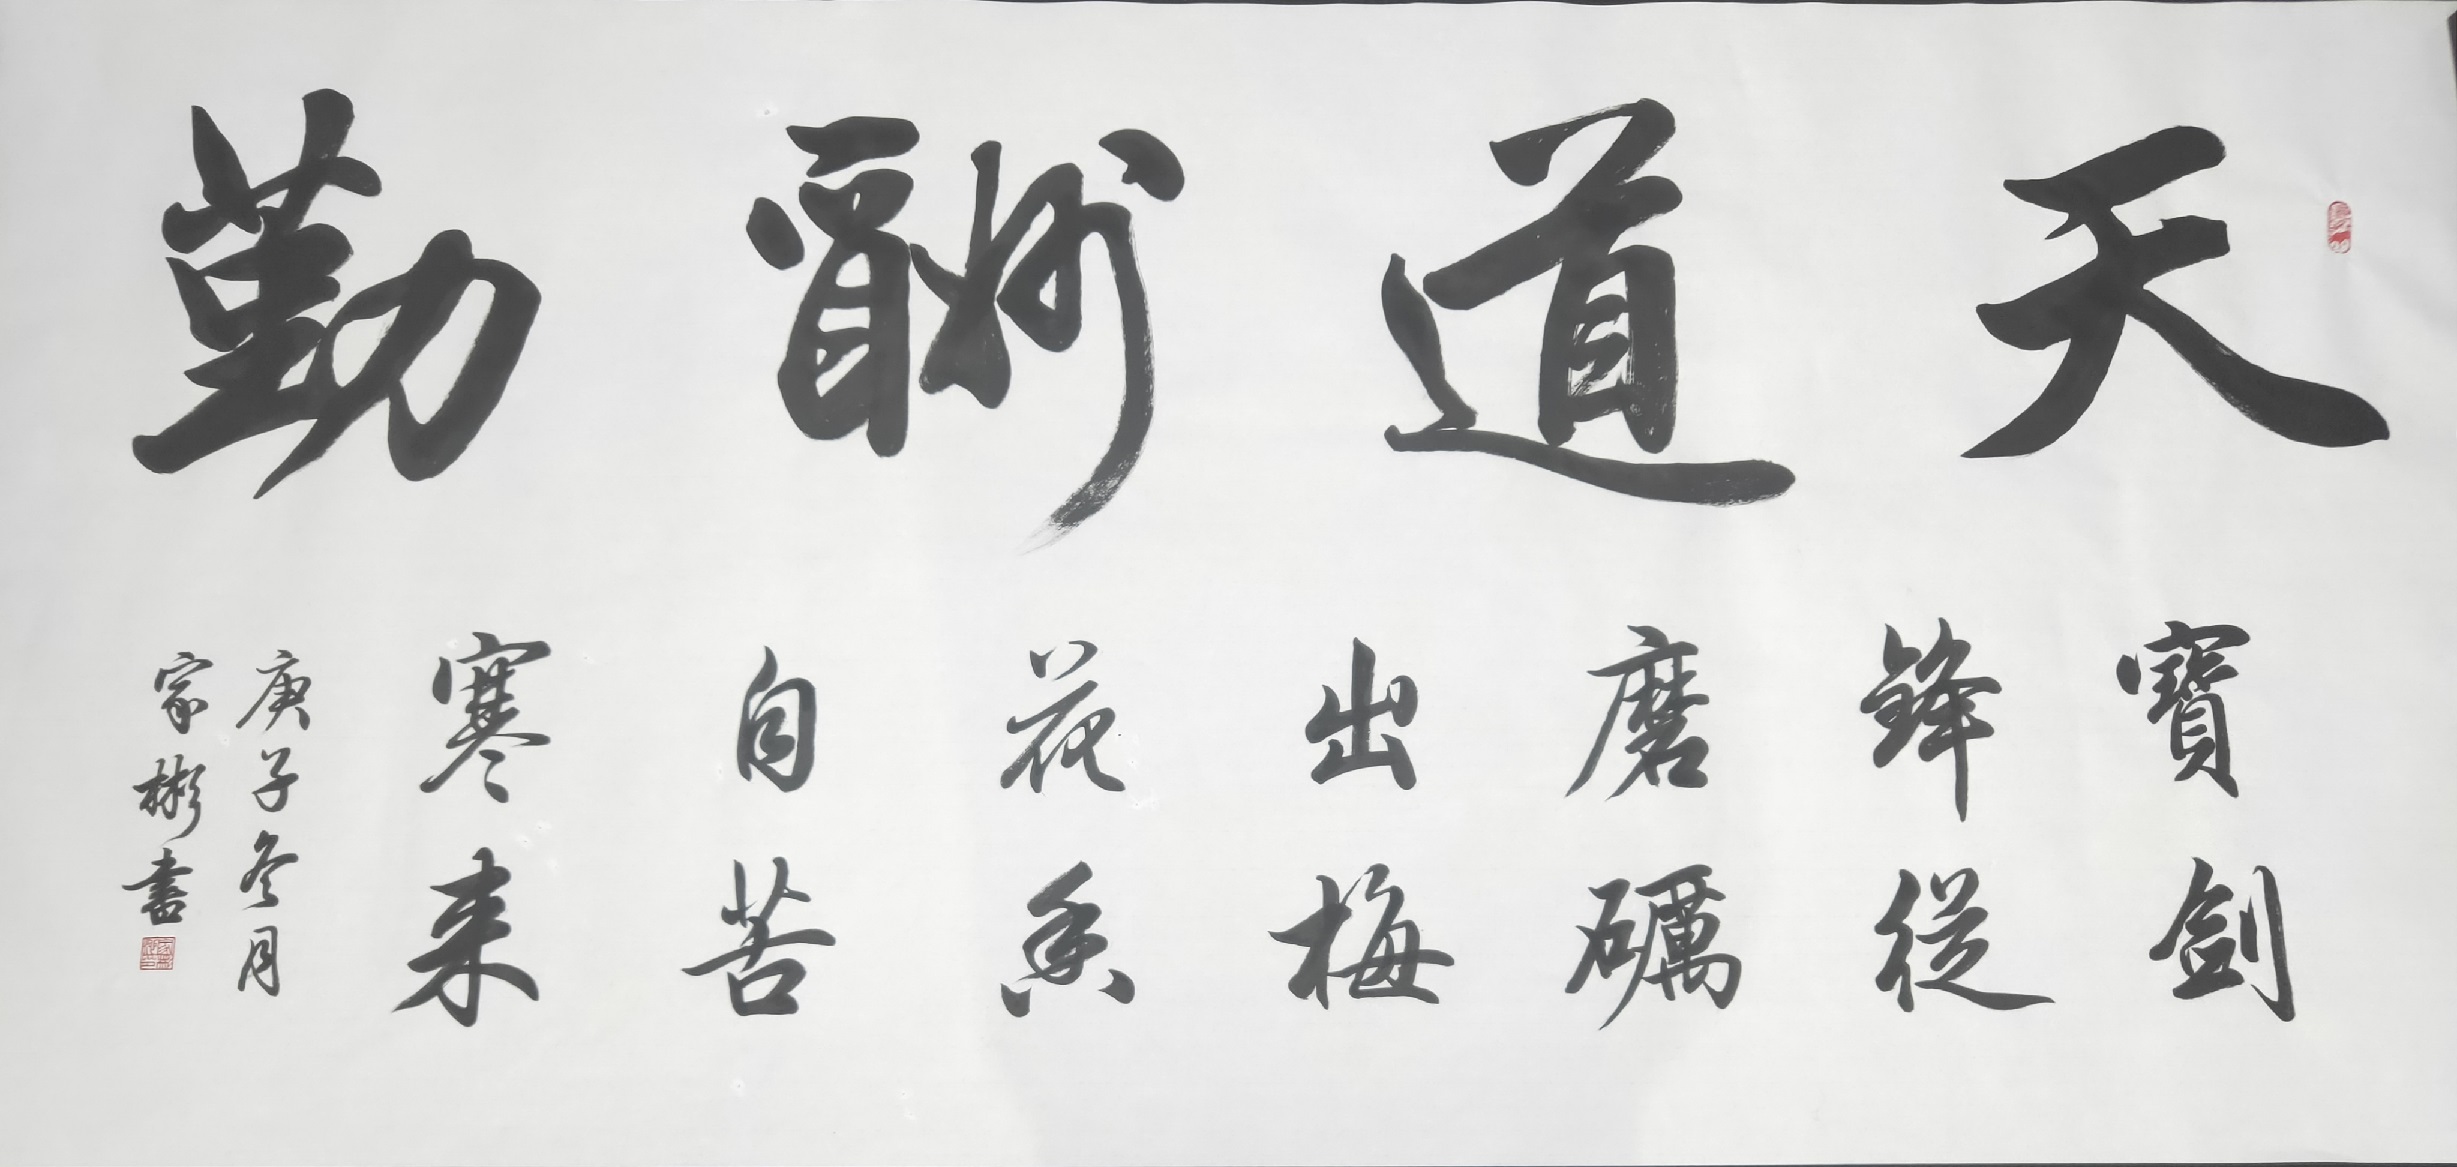 天道酬勤
寶劍
鋒從
磨礪
出梅
花香
自苦
寒来
庚子冬月
家彬書